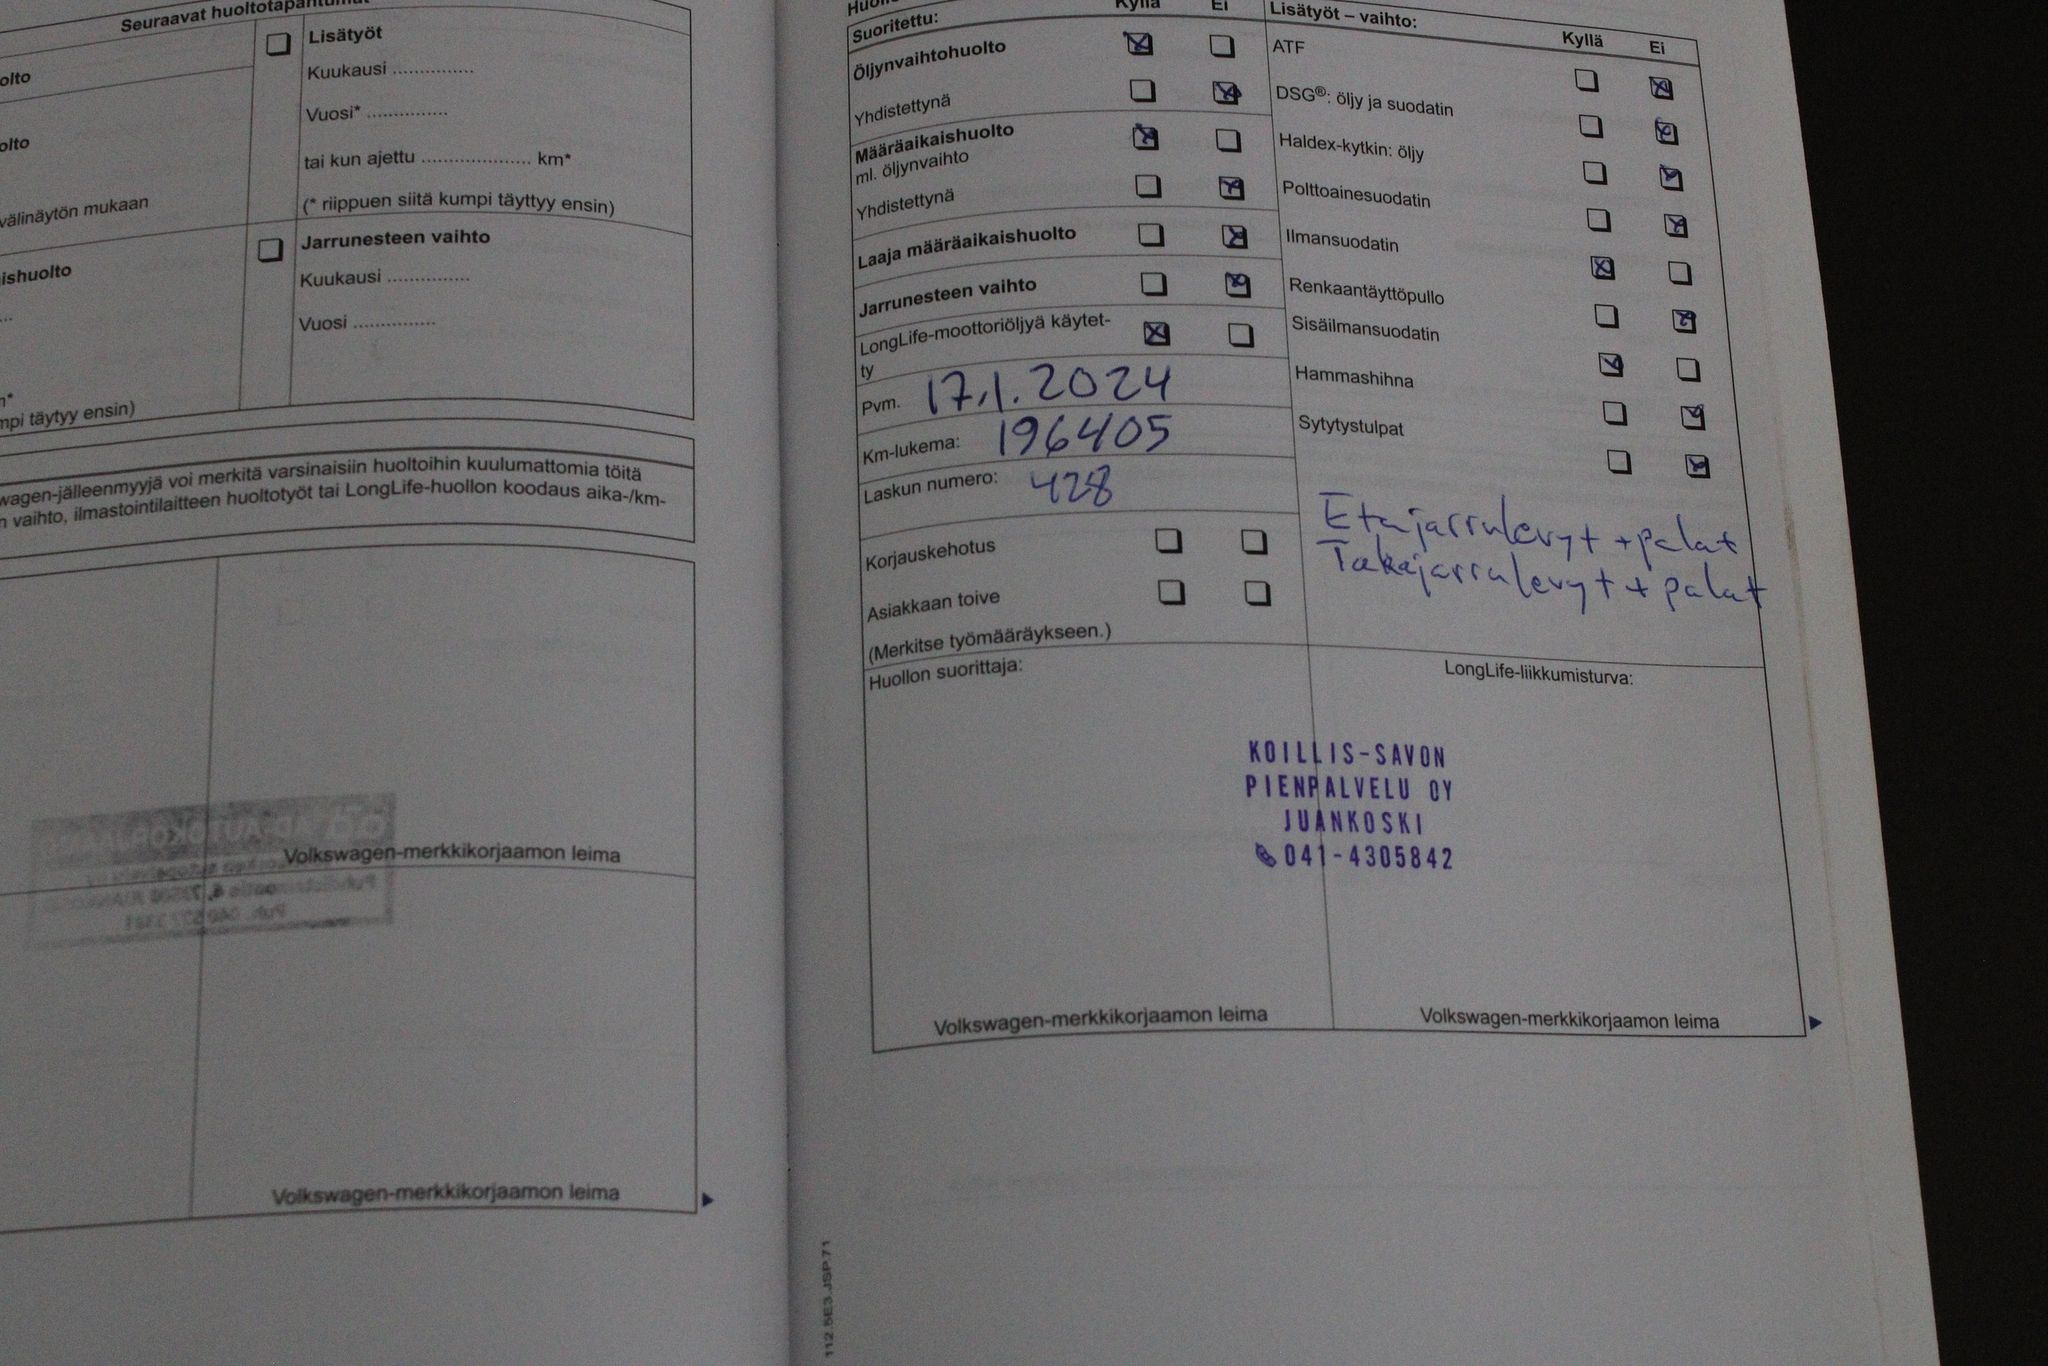 Seuraavat huoltotapahtumat
olto
Lisätyöt
Kuukausi ...............
Vuosi* ...............
olto
tai kun ajettu .................... km*
välinäytön mukaan
(* riippuen siitä kumpi täyttyy ensin)
ishuolto
Jarrunesteen vaihto
Kuukausi ...............
Vuosi ...............
mpi täytyy ensin)
wagen-jälleenmyyjä voi merkitä varsinaisiin huoltoihin kuulumattomia töitä
n vaihto, ilmastointilaitteen huoltotyöt tai LongLife-huollon koodaus aika-/km-
Volkswagen-merkkikorjaamon leima
Volkswagen-merkkikorjaamon leima
Suoritettu: Kyllä Ei
Öljynvaihtohuolto
Yhdistettynä
Määräaikaishuolto
ml. öljynvaihto
Yhdistettynä
Laaja määräaikaishuolto
Jarrunesteen vaihto
LongLife-moottoriöljyä käytet-
ty
Pvm. 17.1.2024
Km-lukema: 196405
Laskun numero: 428
Korjauskehotus
Asiakkaan toive
(Merkitse työmääräykseen.)
Lisätyöt – vaihto: Kyllä Ei
ATF
DSG®: öljy ja suodatin
Haldex-kytkin: öljy
Polttoainesuodatin
Ilmansuodatin
Renkaantäyttöpullo
Sisäilmansuodatin
Hammashihna
Sytytystulpat
Etujarrulevyt + palat
Takajarrulevyt + palat
Huollon suorittaja:
LongLife-liikkumisturva:
KOILLIS-SAVON
PIENPALVELU OY
JUANKOSKI
041-4305842
Volkswagen-merkkikorjaamon leima
Volkswagen-merkkikorjaamon leima
112.5E3.JSP.71